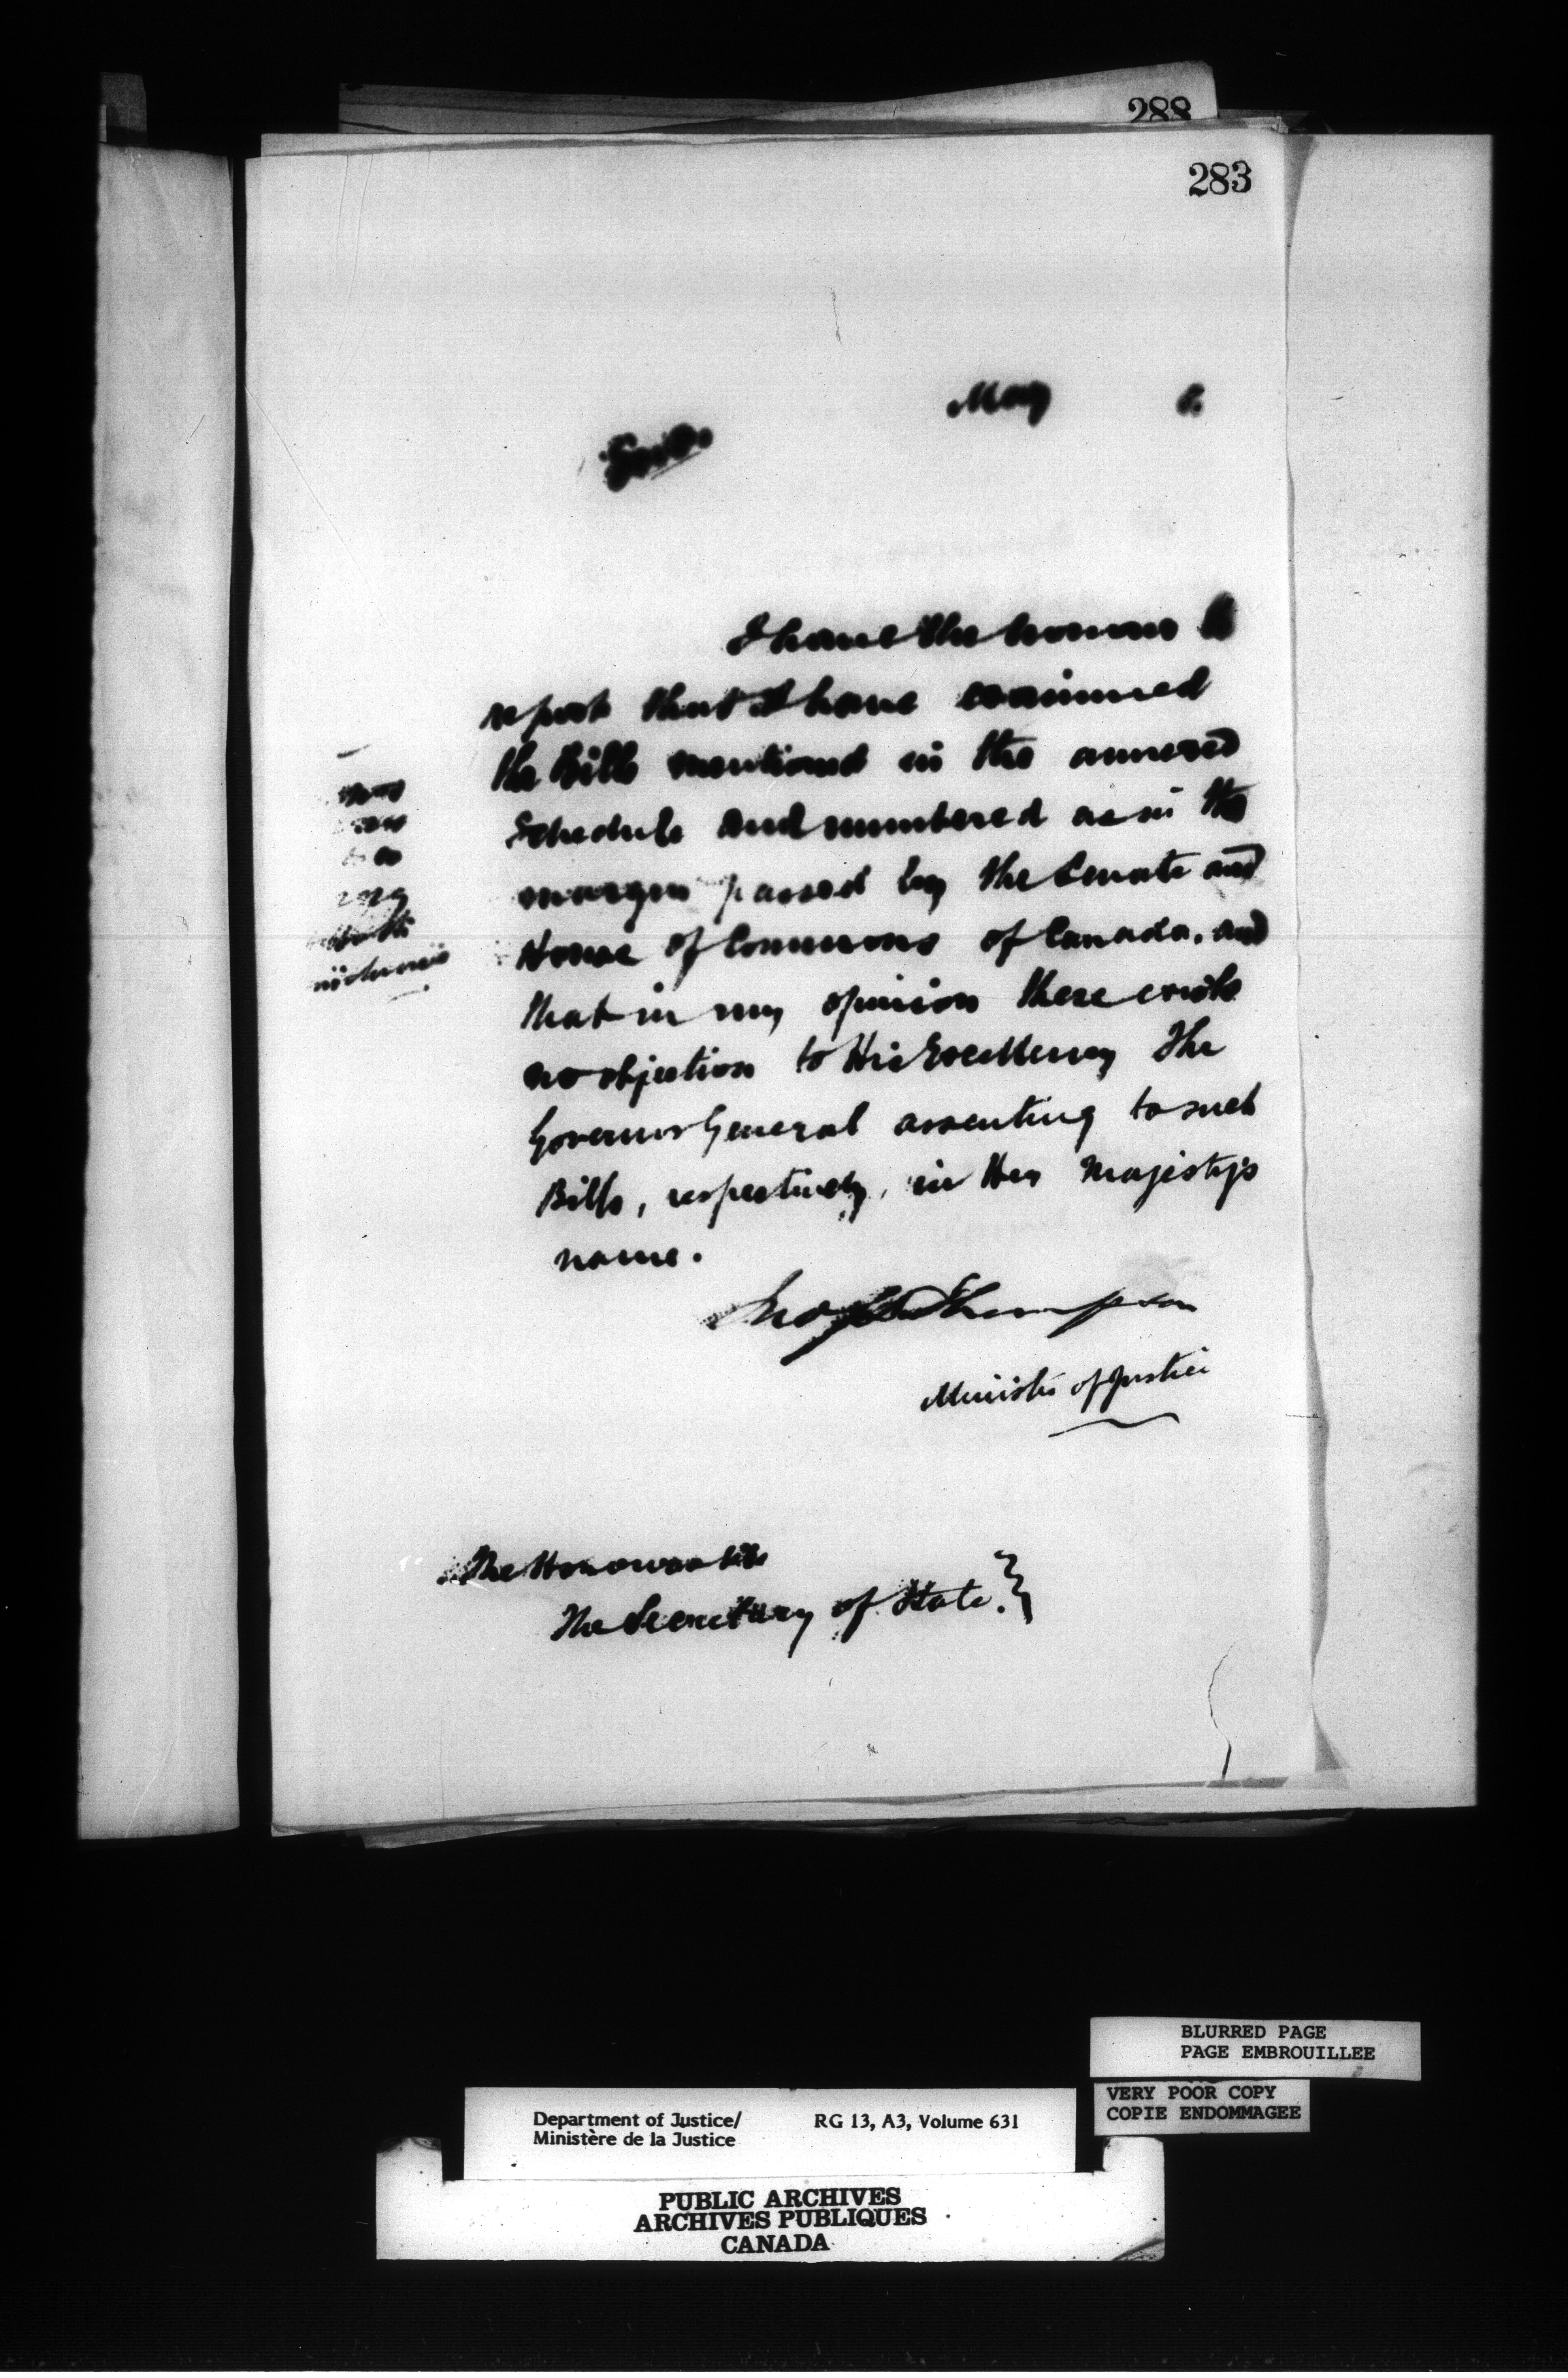 288
283
May
Sir.
I have the honour to
report that I have examined
the Bills mentioned in the annexed
Schedule and numbered as in the
margin passed by the Senate and
House of Commons of Canada, and
that in my opinion there exists
no objection to His Excellency The
Governor General assenting to such
Bills, respectively, in Her Majesty's
name.
Jno S D Thompson
Minister of Justice
The Honourable
The Secretary of State.
BLURRED PAGE
PAGE EMBROUILLEE
VERY POOR COPY
COPIE ENDOMMAGEE
Department of Justice/ RG 13, A3, Volume 631
Ministère de la Justice
PUBLIC ARCHIVES
ARCHIVES PUBLIQUES
CANADA